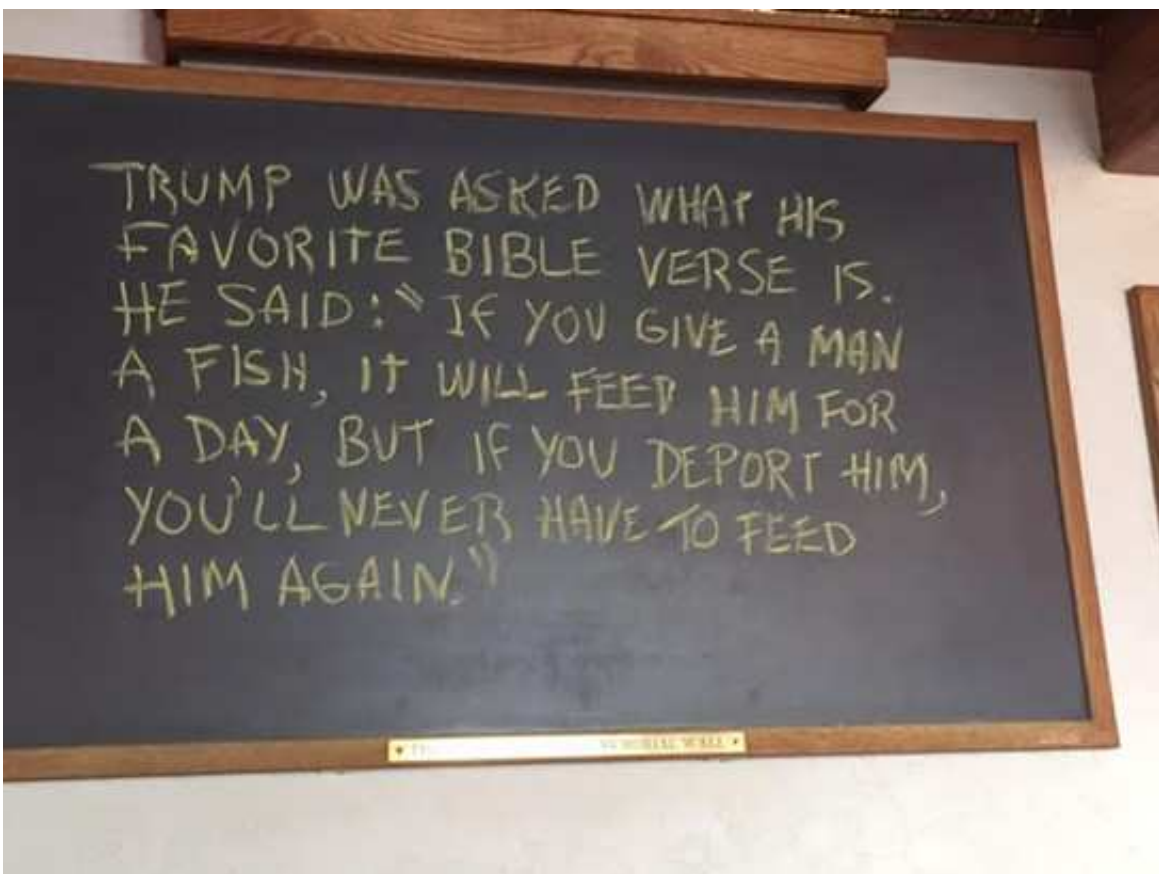 TRUMP WAS ASKED WHAT HIS
FAVORITE BIBLE VERSE IS.
HE SAID: "IF YOU GIVE A MAN
A FISH, IT WILL FEED HIM FOR
A DAY, BUT IF YOU DEPORT HIM,
YOU'LL NEVER HAVE TO FEED
HIM AGAIN."
MEMORIAL WALL